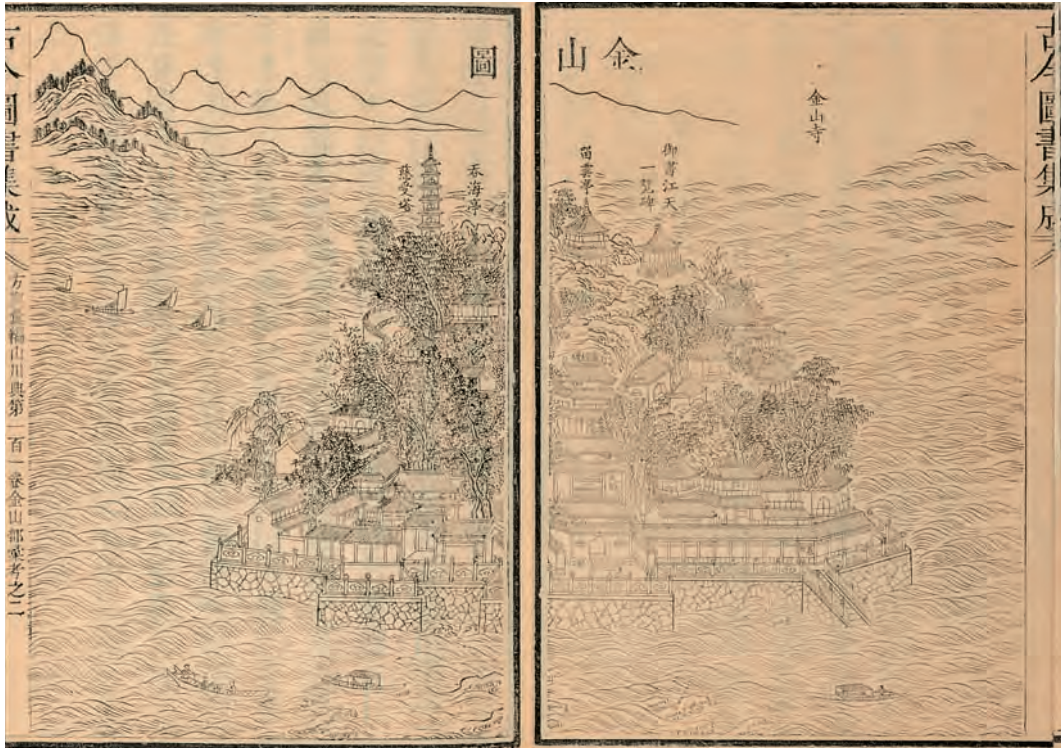 古今圖書集成
金山
金山寺
御書江天
一覽碑
留雲亭
圖
吞海亭
慈受塔
古今圖書集成
方輿彙編山川典第一百一卷金山部彙考之二